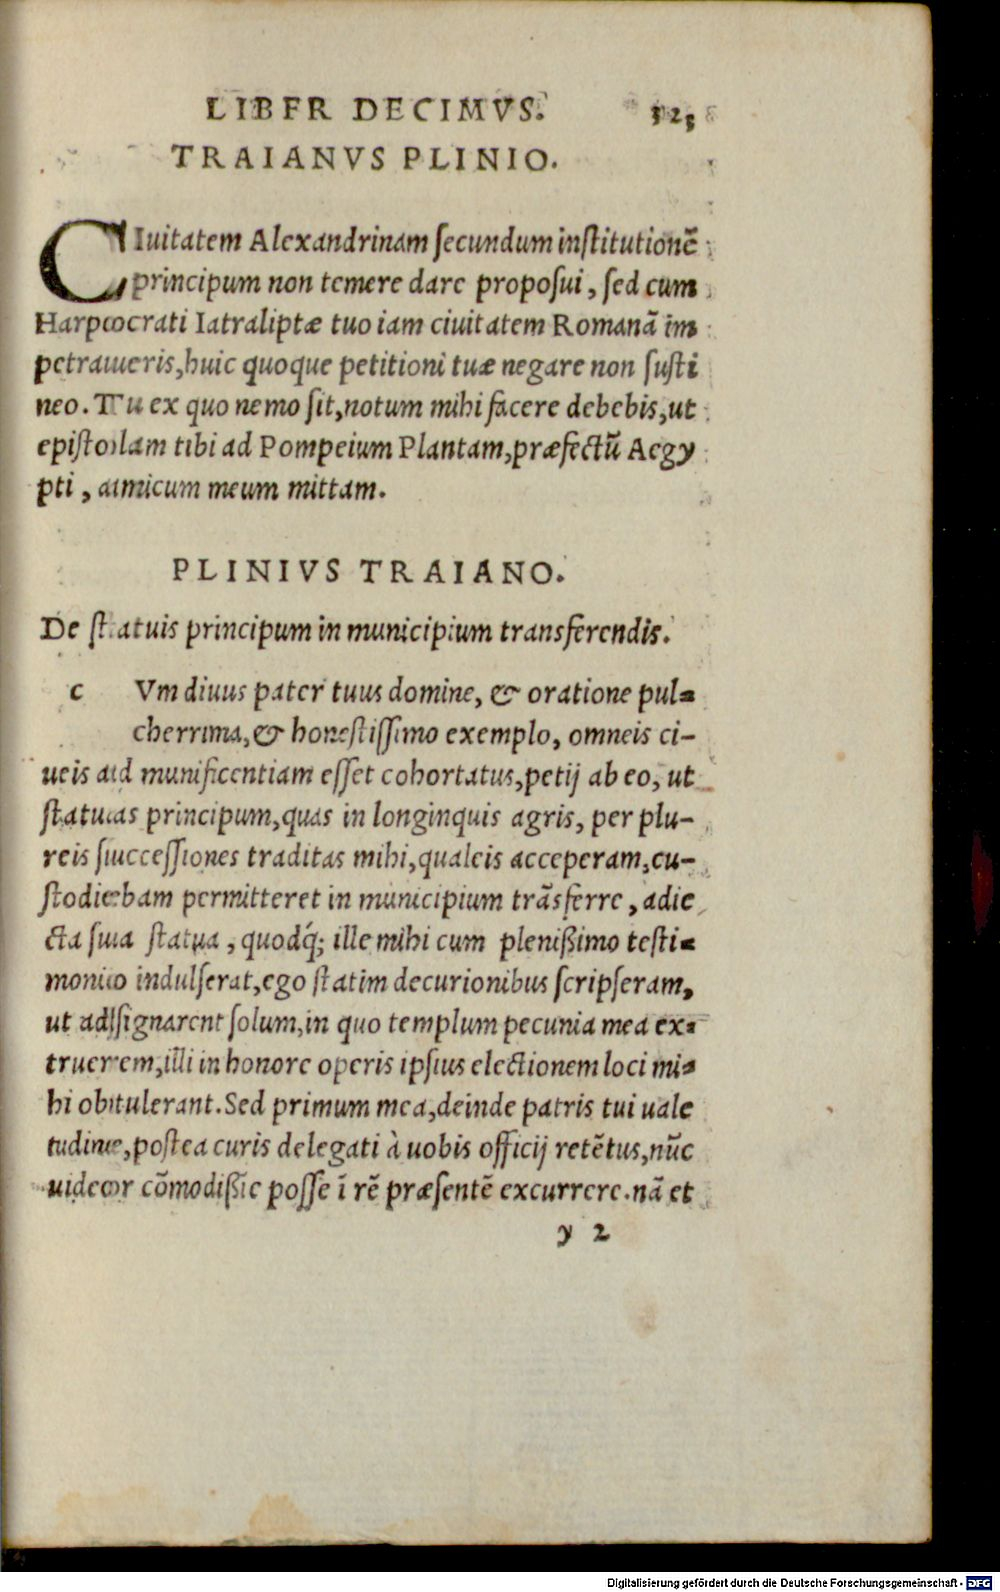 LIBER DECIMVS. 323
TRAIANVS PLINIO.
CIuitatem Alexandrinam secundum institutionē
principum non temere dare proposui, sed cum
Harpocrati Iatraliptæ tuo iam ciuitatem Romanā im
petraueris, huic quoque petitioni tuæ negare non susti
neo. Tu ex quo nemo sit, notum mihi facere debebis, ut
epistolam tibi ad Pompeium Plantam, præfectū Aegy
pti, amicum meum mittam.
PLINIVS TRAIANO.
De statuis principum in municipium transferendis.
c Vm diuus pater tuus domine, & oratione pul-
cherrima, & honestissimo exemplo, omneis ci-
ueis ad munificentiam esset cohortatus, petij ab eo, ut
statuas principum, quas in longinquis agris, per plu-
reis successiones traditas mihi, qualeis acceperam, cu-
stodiebam permitteret in municipium trāsferre, adie
cta sua statua, quodq́; ille mihi cum plenißimo testi-
monio indulserat, ego statim decurionibus scripseram,
ut adsignarent solum, in quo templum pecunia mea ex-
truerem, illi in honore operis ipsius electionem loci mi-
hi obtulerant. Sed primum mea, deinde patris tui uale
tudine, postea curis delegati à uobis officij retētus, nūc
uideor cōmodißie posse ī rē præsentē excurrere. nā et
y 2
Digitalisierung gefördert durch die Deutsche Forschungsgemeinschaft - DFG